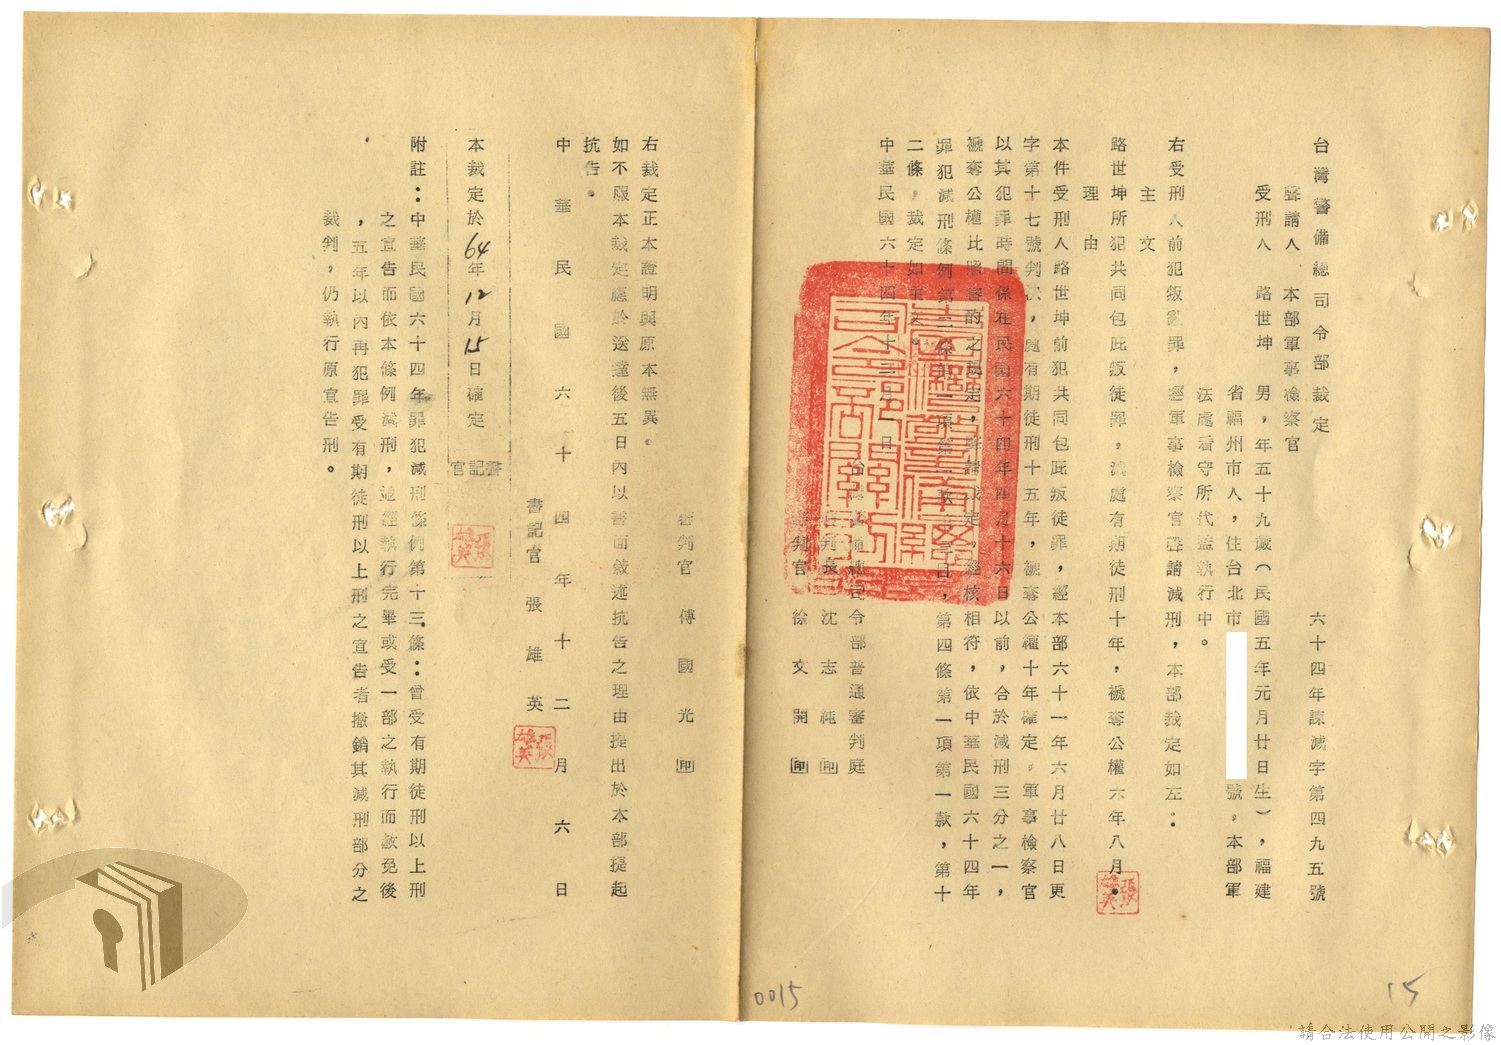 台灣警備總司令部裁定　六十四年諫減字第四九五號
聲請人　本部軍事檢察官
受刑人　路世坤　男，年五十九歲（民國五年元月廿日生），福建
省福州市人，住台北市　號，本部軍
法處看守所代監執行中。
右受刑人前犯叛亂罪，經軍事檢察官聲請減刑，本部裁定如左：
主文
路世坤所犯共同包庇叛徒罪，減處有期徒刑十年，褫奪公權六年八月。
理由
本件受刑人路世坤前犯共同包庇叛徒罪，經本部六十一年六月廿八日更
字第十七號判決，處有期徒刑十五年，褫奪公權十年確定。軍事檢察官
以其犯罪時間係在民國六十四年四月十六日以前，合於減刑三分之一，
褫奪公權比照審酌之規定，聲請裁定，經核相符，依中華民國六十四年
罪犯減刑條例第二條第一項第二款第三目，第四條第一項第一款，第十
二條，裁定如主文。
中華民國六十四年十二月一日
台灣警備總司令部普通審判庭
審判長　沈志純　印
審判官　徐文開　印
審判官　傅國光　印
右裁定正本證明與原本無異。
如不服本裁定應於送達後五日內以書面敘述抗告之理由提出於本部提起
抗告。
中華民國六十四年十二月六日
書記官　張雄英
張雄英
本裁定於64年12月15日確定　書記官
張雄英
附註：中華民國六十四年罪犯減刑條例第十三條：曾受有期徒刑以上刑
之宣告而依本條例減刑，並經執行完畢或受一部之執行而赦免後
，五年以內再犯罪受有期徒刑以上刑之宣告者撤銷其減刑部分之
裁判，仍執行原宣告刑。
張雄英
0015
15
請合法使用公開之影像